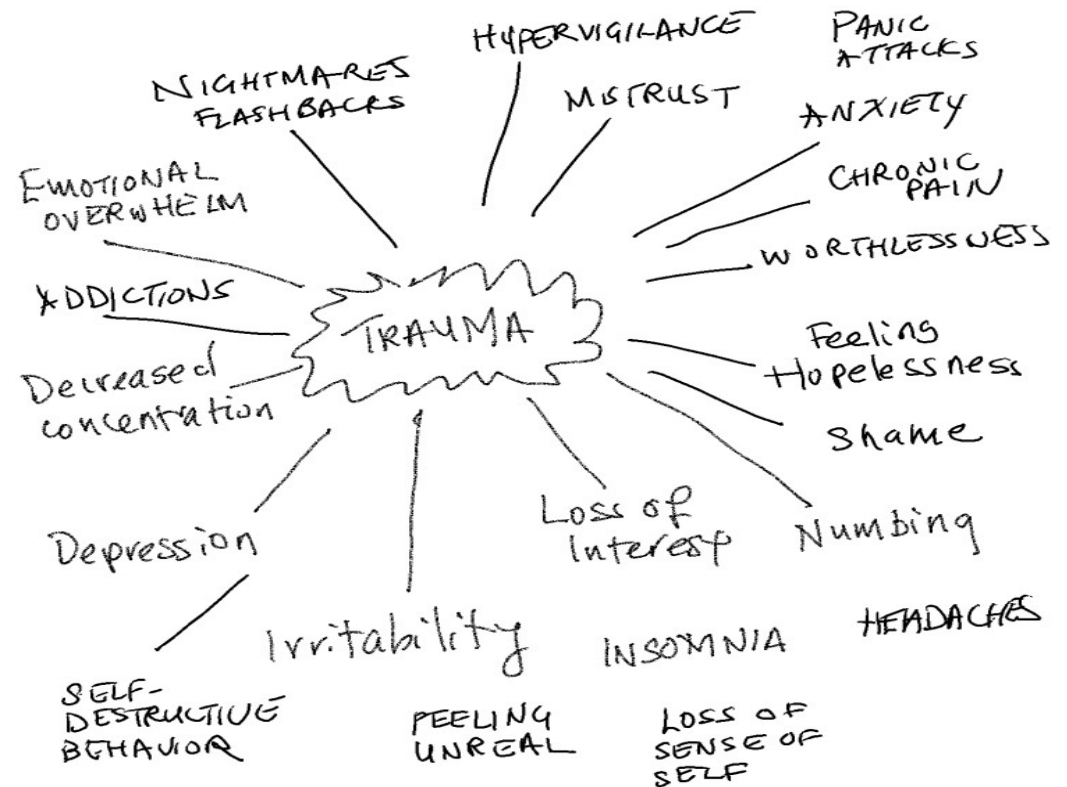 HYPERVIGILANCE
PANIC
ATTACKS
NIGHTMARES
FLASHBACKS
MISTRUST
ANXIETY
EMOTIONAL
OVERWHELM
CHRONIC
PAIN
WORTHLESSNESS
ADDICTIONS
TRAUMA
Feeling
Hopelessness
Decreased
concentration
Shame
Loss of
Interest
Numbing
Depression
Irritability
INSOMNIA
HEADACHES
SELF-
DESTRUCTIVE
BEHAVIOR
FEELING
UNREAL
LOSS OF
SENSE OF
SELF